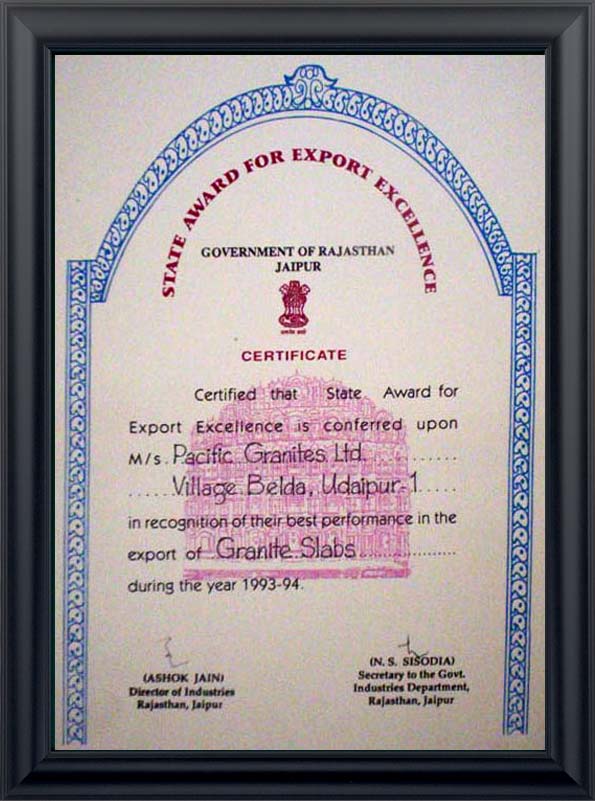 STATE AWARD FOR EXPORT EXCELLENCE
GOVERNMENT OF RAJASTHAN
JAIPUR
सत्यमेव जयते
CERTIFICATE
Certified that State Award for
Export Excellence is conferred upon
M/s. Pacific Granites Ltd. ............
......Village Belda, Udaipur-1.....
in recognition of their best performance in the
export of Granite Slabs..................
during the year 1993-94.
(ASHOK JAIN)
Director of Industries
Rajasthan, Jaipur
(N. S. SISODIA)
Secretary to the Govt.
Industries Department,
Rajasthan, Jaipur